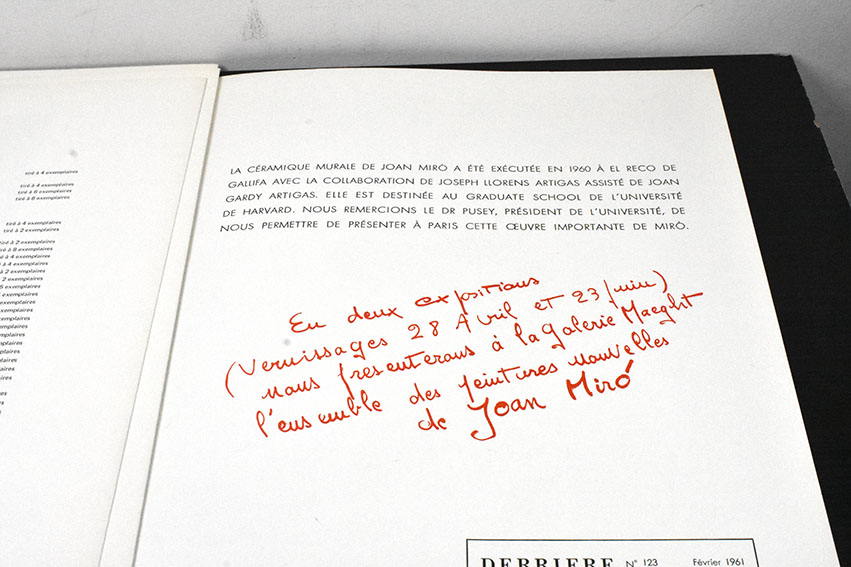 tiré à 4 exemplaires
tiré à 4 exemplaires
tiré à 6 exemplaires
tiré à 6 exemplaires
tiré à 2 exemplaires
tiré à 2 exemplaires
exemplaires
exemplaires
exemplaires
exemplaires
exemplaires
exemplaires
exemplaires
LA CÉRAMIQUE MURALE DE JOAN MIRÓ A ÉTÉ EXÉCUTÉE EN 1960 À EL RECO DE
GALLIFA AVEC LA COLLABORATION DE JOSEPH LLORENS ARTIGAS ASSISTÉ DE JOAN
GARDY ARTIGAS. ELLE EST DESTINÉE AU GRADUATE SCHOOL DE L'UNIVERSITÉ
DE HARVARD. NOUS REMERCIONS LE DR PUSEY, PRÉSIDENT DE L'UNIVERSITÉ, DE
NOUS PERMETTRE DE PRÉSENTER À PARIS CETTE ŒUVRE IMPORTANTE DE MIRÓ.
En deux expositions
(Vernissages 28 Avril et 23 juin)
nous présenterons à la Galerie Maeght
l'ensemble des peintures nouvelles
de Joan Miró
DERRIERE N° 123 Février 1961